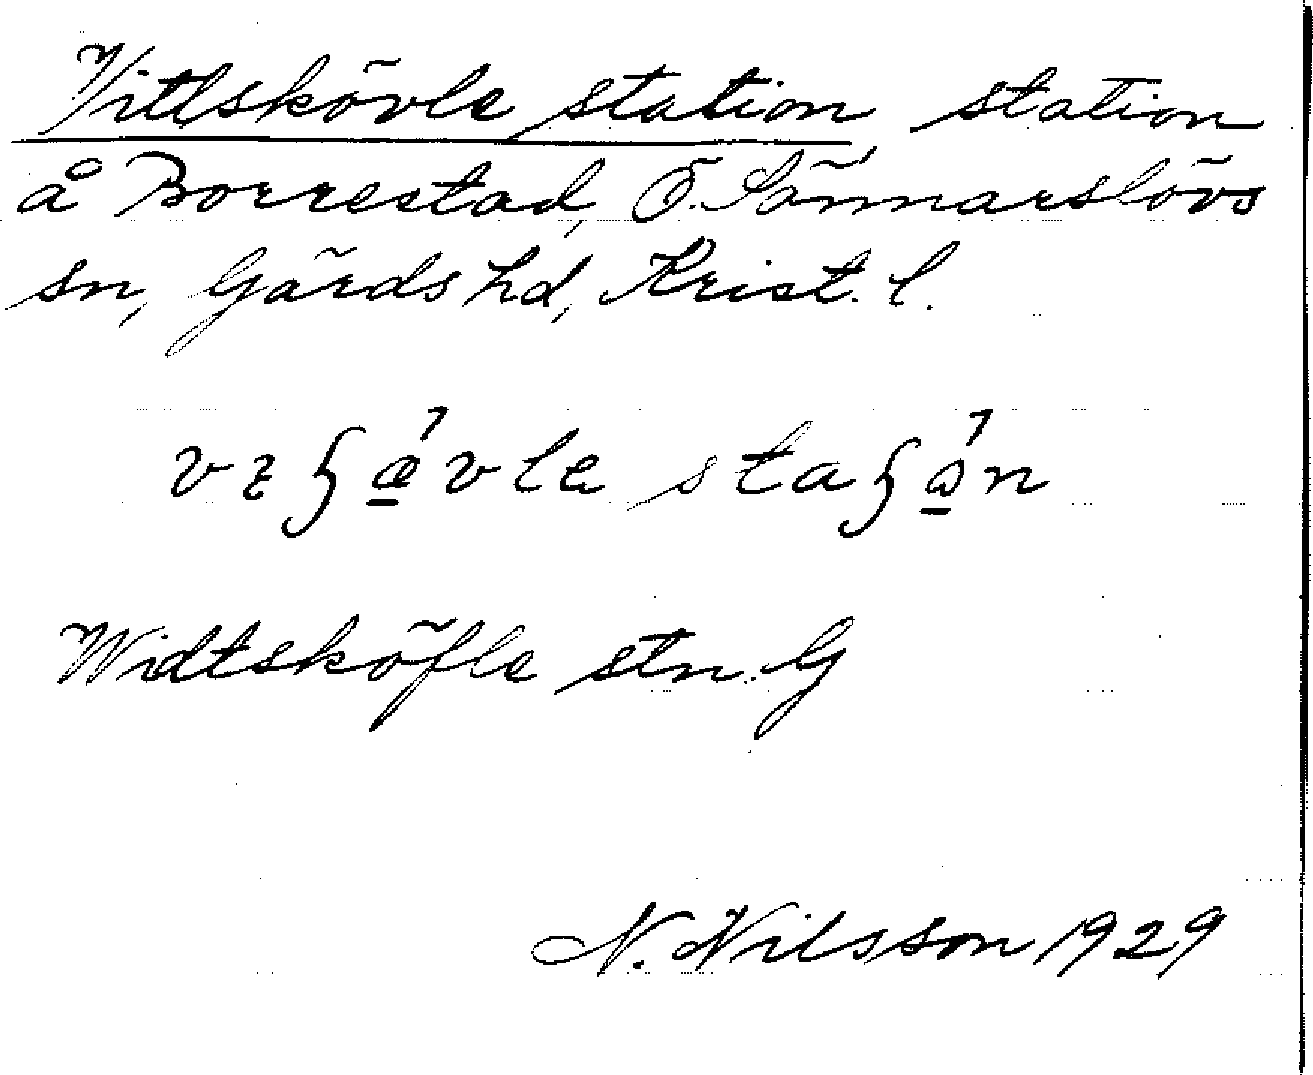 Vittskövle station station
å Borrestad, Ö. Sönnarslövs
sn, Gärds hd, Krist. l.
stn. G
Widtsköfle stn. G
N. Nilsson 1929